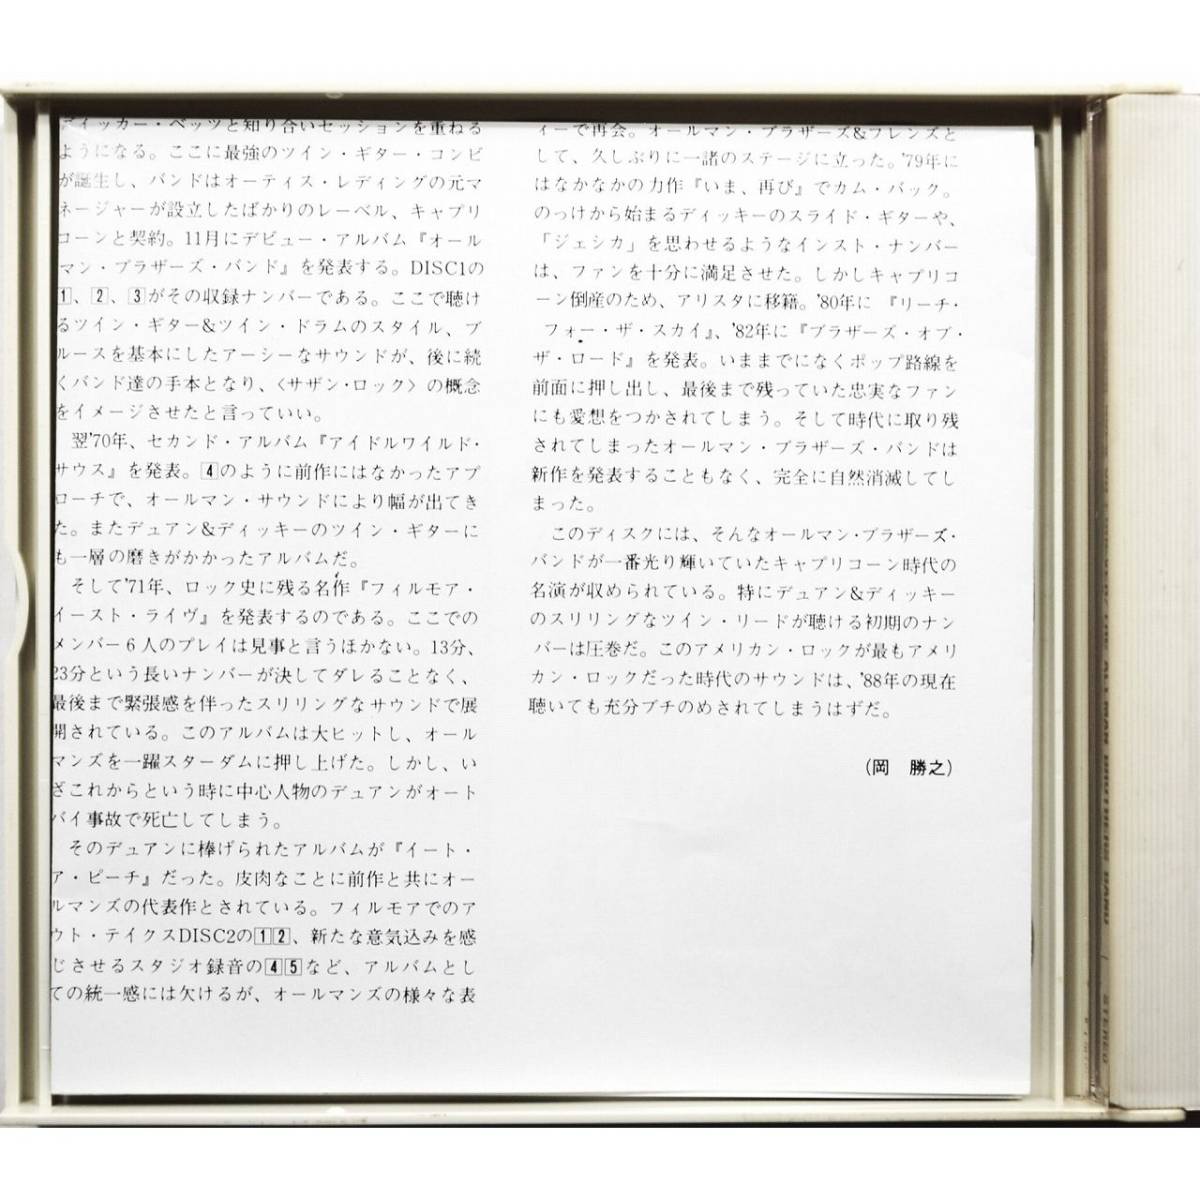 ディッカー・ベッツと知り合いセッションを重ねる
ようになる。ここに最強のツイン・ギター・コンビ
が誕生し、バンドはオーティス・レディングの元マ
ネージャーが設立したばかりのレーベル、キャプリ
コーンと契約。11月にデビュー・アルバム『オール
マン・ブラザーズ・バンド』を発表する。DISC1の
1、2、3がその収録ナンバーである。ここで聴け
るツイン・ギター&ツイン・ドラムのスタイル、ブ
ルースを基本にしたアーシーなサウンドが、後に続
くバンド達の手本となり、〈サザン・ロック〉の概念
をイメージさせたと言っていい。
翌'70年、セカンド・アルバム『アイドルワイルド・
サウス』を発表。4のように前作にはなかったアプ
ローチで、オールマン・サウンドにより幅が出てき
た。またデュアン&ディッキーのツイン・ギターに
も一層の磨きがかかったアルバムだ。
そして'71年、ロック史に残る名作『フィルモア・
イースト・ライヴ』を発表するのである。ここでの
メンバー6人のプレイは見事と言うほかない。13分、
23分という長いナンバーが決してダレることなく、
最後まで緊張感を伴ったスリリングなサウンドで展
開されている。このアルバムは大ヒットし、オール
マンズを一躍スターダムに押し上げた。しかし、い
ざこれからという時に中心人物のデュアンがオート
バイ事故で死亡してしまう。
そのデュアンに捧げられたアルバムが『イート・
ア・ピーチ』だった。皮肉なことに前作と共にオー
ルマンズの代表作とされている。フィルモアでのア
ウト・テイクスDISC2の12、新たな意気込みを感
じさせるスタジオ録音の45など、アルバムとし
ての統一感には欠けるが、オールマンズの様々な表
ィーで再会。オールマン・ブラザーズ&フレンズと
して、久しぶりに一諸のステージに立った。'79年に
はなかなかの力作『いま、再び』でカム・バック。
のっけから始まるディッキーのスライド・ギターや、
「ジェシカ」を思わせるようなインスト・ナンバー
は、ファンを十分に満足させた。しかしキャプリコ
ーン倒産のため、アリスタに移籍。'80年に『リーチ・
フォー・ザ・スカイ』、'82年に『ブラザーズ・オブ・
ザ・ロード』を発表。いままでになくポップ路線を
前面に押し出し、最後まで残っていた忠実なファン
にも愛想をつかされてしまう。そして時代に取り残
されてしまったオールマン・ブラザーズ・バンドは
新作を発表することもなく、完全に自然消滅してし
まった。
このディスクには、そんなオールマン・ブラザーズ・
バンドが一番光り輝いていたキャプリコーン時代の
名演が収められている。特にデュアン&ディッキー
のスリリングなツイン・リードが聴ける初期のナン
バーは圧巻だ。このアメリカン・ロックが最もアメリ
カン・ロックだった時代のサウンドは、'88年の現在
聴いても充分ブチのめされてしまうはずだ。
(岡　勝之)
THE ALLMAN BROTHERS BAND
STEREO